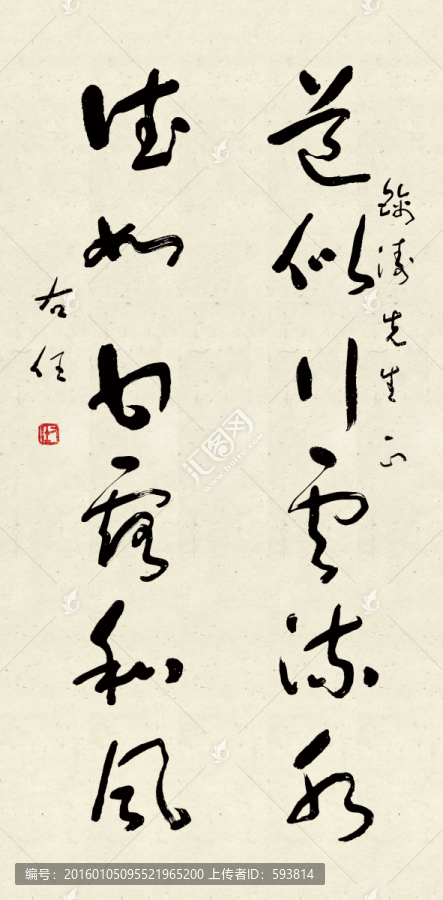 道似行雲流水
德如甘露和風
先生正
右任
汇图网
编号：20160105095521965200 上传者ID：593814